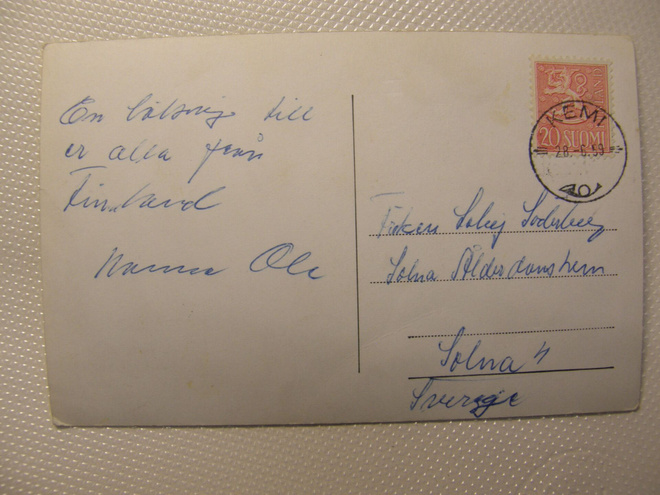 En hälsning till
er alla från
Finland
Ole
20 SUOMI
KEMI
28.-6.59
Fröken Solvej Söderberg
Solna Ålderdomshem
Solna 4
Sverige